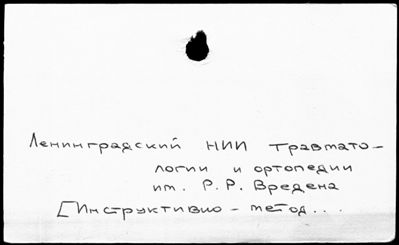 Ленинградский НИИ травмато-
логии и ортопедии
им. Р.Р. Вредена
[Инструктивно - метод...